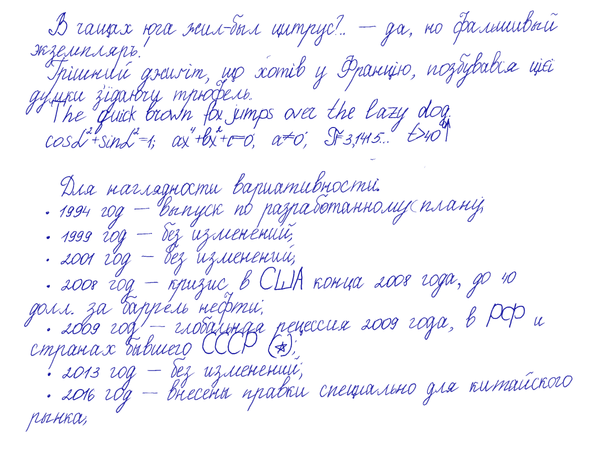 В чащах юга жил-был цитрус?.. — да, но фальшивый
экземпляръ.
Грішний джигіт, що хотів у Францію, позбувався цієї
думки з'їдаючи трюфель.
The quick brown fox jumps over the lazy dog.
cosα²+sinα²=1; ax⁴+bx²+c=0; a≠0; π=3,1415... t>40°
Для наглядности вариативности:
• 1994 год — выпуск по разработанному плану,
• 1999 год — без изменений,
• 2001 год — без изменений,
• 2008 год — кризис в США конца 2008 года, до 40
долл. за баррель нефти;
• 2009 год — глобальная рецессия 2009 года, в РФ и
странах бывшего СССР (*);
• 2013 год — без изменений;
• 2016 год — внесены правки специально для китайского
рынка,